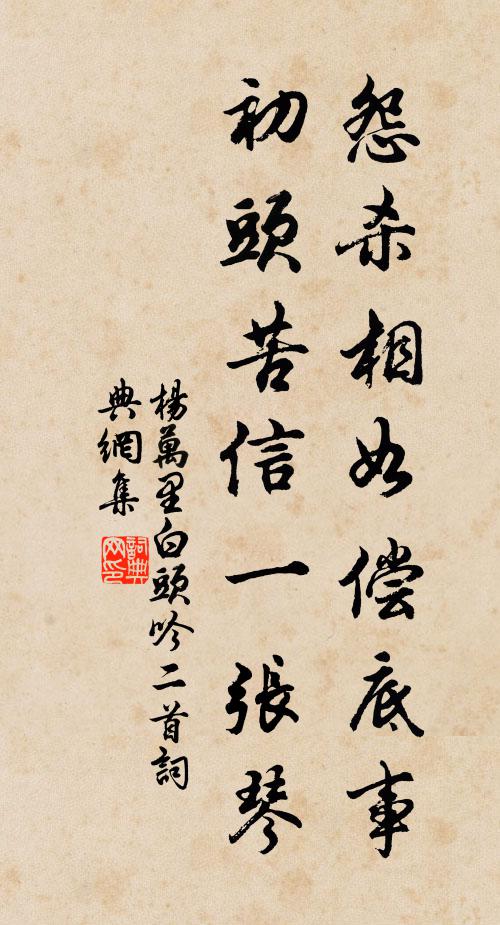 怨杀相如偿底事
初頭苦信一張琴
楊萬里白頭吟二首詞
典網集
詞典網印